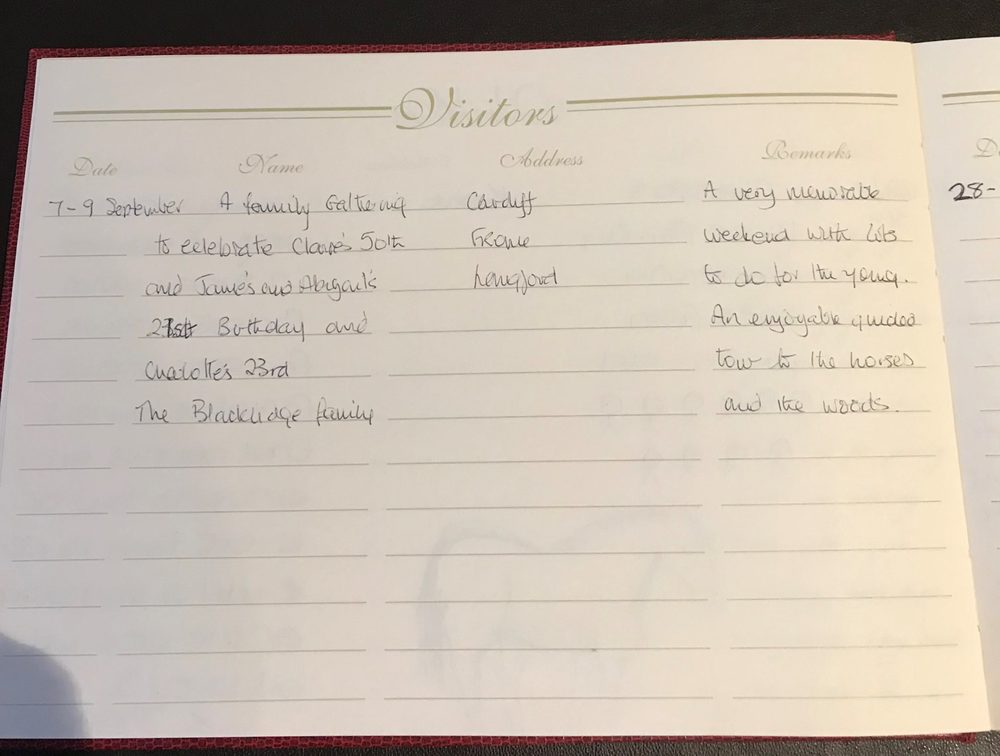 Visitors
Date Name Address Remarks
7-9 September A family Gathering Cardiff A very memorable
to celebrate Claire's 50th Frome weekend with lots
and James and Abigail's Longford to do for the young.
21st Birthday and An enjoyable guided
Charlotte's 23rd tour to the horses
The Blacklidge family and the woods.
28-